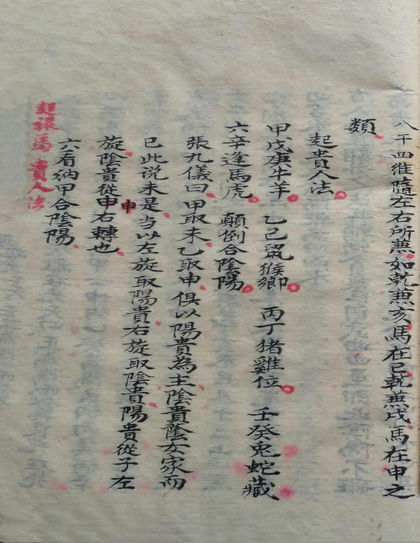 八干四維隨左右所兼如乾兼亥馬在巳乾兼戌馬在申之
類
起貴人法
甲戊庚牛羊 乙己鼠猴鄉 丙丁猪雞位 壬癸兔蛇藏
六辛逢馬虎 顛倒合陰陽
張九儀曰甲取未乙取申俱以陽貴為主陰貴蔭女家而
已此説未是当以左旋取陽貴右旋取陰貴陽貴從子左
旋陰貴從申右轉也
申
六看納甲合陰陽
起祿馬貴人法